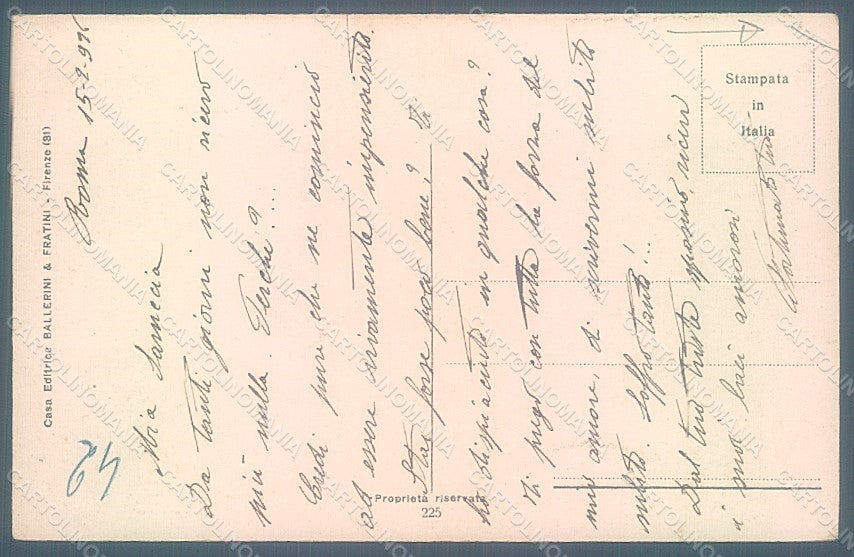 Casa Editrice BALLERINI & FRATINI - Firenze (31)
Stampata
in
Italia
Proprietà riservata
225
Roma 15-2-92
Mia
Da tanti giorni non ricevo
più nulla. Perché?...
Credi pure che ne comincio
ad essere vivamente impensierito.
Stai forse poco bene? Ti
ho dispiaciuto in qualche cosa?
Ti prego con tutta la forza del
mio amore, di scrivermi subito
subito. Soffro tanto!..
Dal tuo ricevi
i miei baci amorosi
tuo
42
CARTOLINOMANIA